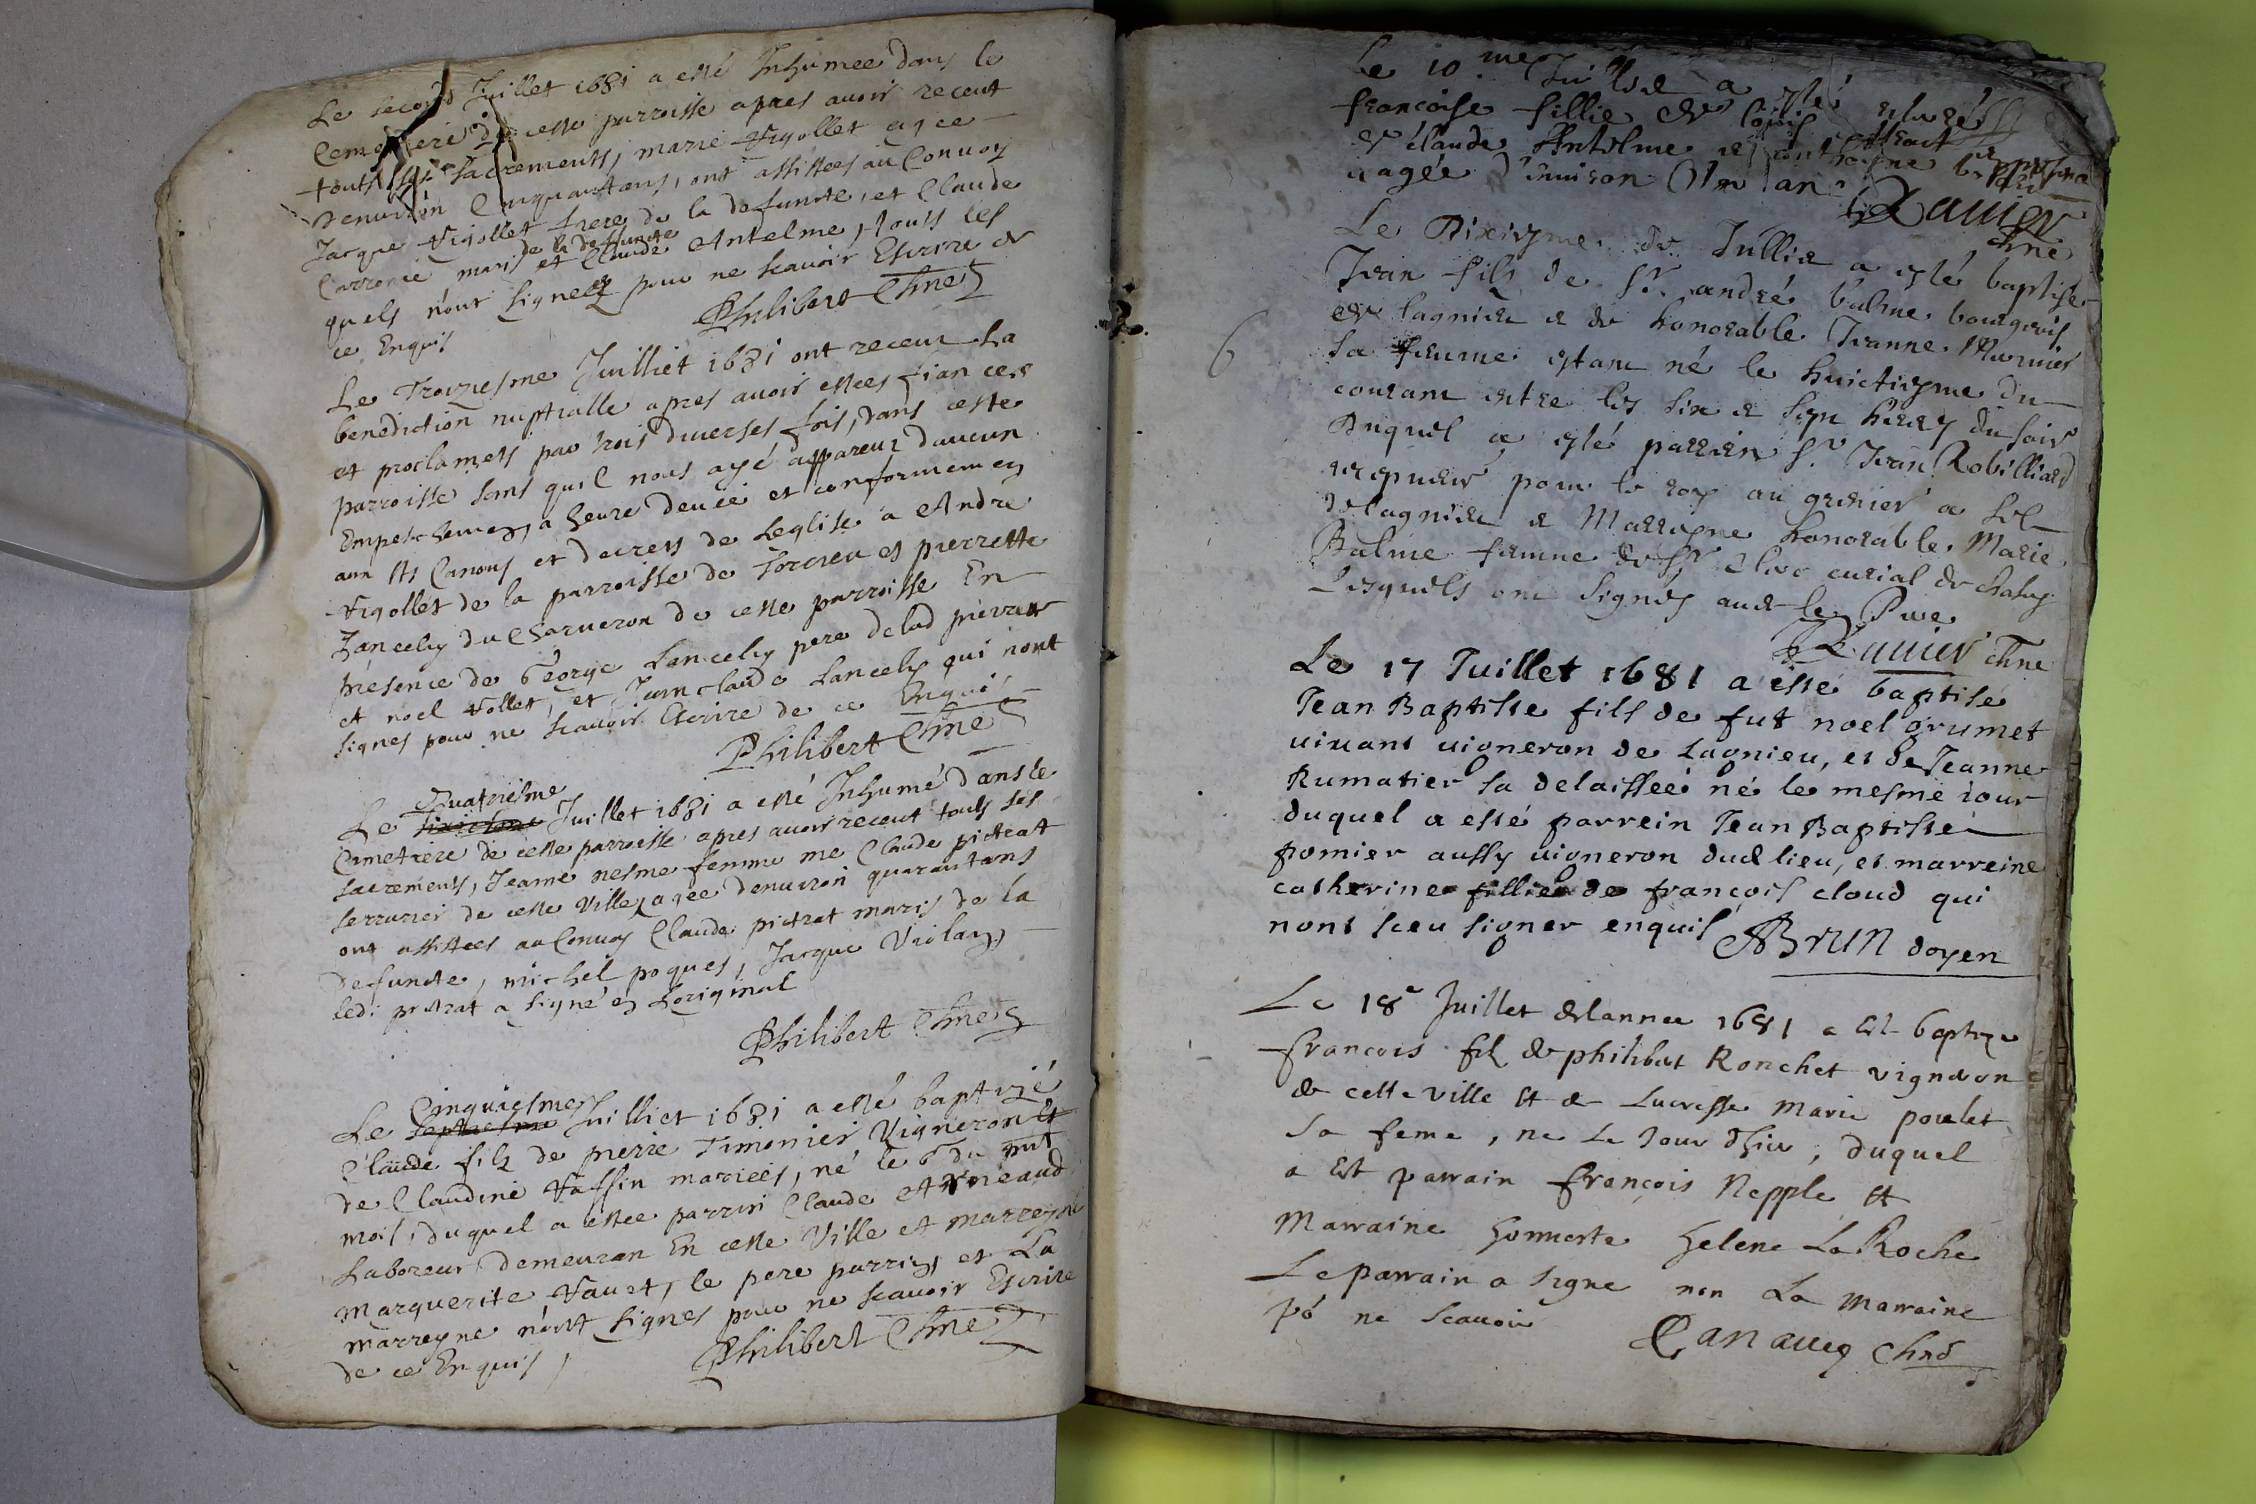 Le second Juillet 1681 a esté Inhumee dans le
Cemetiere de ceste parroisse apres auoir receut
touts ses sacrements, marie Vigollet agee
denuiron Cinquantans, ont assistees au Conuoy
Jacque Vigollet frere de la defuncte, et Claude
Carronie maris de la defuncte et Claude Antelme, touts les
quels n'ont signees pour ne scauoir Escrire de
ce Enquis
Philibert Chne
Le Troiziesme Juilliet 1681 ont receu La
benediction nuptialle apres auoir estees fiances
et proclamets par trois diuerses fois, dans ceste
parroisse sans quil nous aye appareut d'aucun
Empeschemen, a heure deuee et conformemen
aux Sts Canons et decrets de Leglise a Andre
Vigollet de la parroisse de Torcieu et pierrette
Lancelin du Charueron de ceste parroisse En
presence de George Lancelin pere de lad pierrette
et noel Vollet, et Jean claude Lancelin qui n'ont
signes pour ne scauoir Escrire de ce Enquis
Philibert Chne
Quatriesme
Le Juillet 1681 a esté Inhumé dans le
Cimetiere de ceste parroisse apres auoir receut touts ses
sacrements, Jeanne nesme femme me Claude pictrat
serrurier de ceste Ville, agee denuiron quarantans
ont assistees au Conuoy Claude pictrat maris de la
defuncte, michel poques, Jacque Violan,
ledi pictrat a signé en Loriginal
Philibert Chne
Cinquiesme
Le septiesme Juilliet 1681 a esté baptizé
Claude filz de pierre Timonier Vigneron et
de Claudine Vassin mariees, né le 6 du mt
mois, duquel a estee parrin Claude Arneaud
Laboreur demeuran En ceste Ville et marreyne
Marguerite Vauet, le pere parrin, et La
marreyne n'ont signes pour ne scauoir Escrire
de ce Enquis,
Philibert Chne
Le 10.me Juillet a esté
francoise fillie de
& claude Antelme
aagée d'enuiron Un an
Rauier chne
Le Dixiesme de Jullie a esté baptisé
Jean fils de Sr. andré balme bourgeois
de lagnieu & de honorable Jeanne
sa femme estant né le huictiesme du
courant entre les six & sept heures du soir
Duquel a esté parrein Sr. Jean Robilliard
receueur pour le roy au grenier a sel
de lagnieu & Marreyne honorable Marie
Balme femme de Sr curial de
Lesquels ont signés auec le Pere
Rauier chne
Le 17 Juillet 1681 a esté baptisé
Jean Baptiste fils de fut noel grumet
uiuant uigneron de Lagnieu, et de Jeanne
Rumatier sa delaisseé né le mesme iour
duquel a esté parrein Jean Baptiste
pomier aussy uigneron dud lieu, et marreine
catherine fillie de françois cloud qui
nont sceu signer enquis
ABrun doyen
Le 18e Juillet de lannee 1681 a est baptize
francois fils de philibert Ronchet vigneron
de cette ville et de Lucresse Marie poulet
sa feme, ne Le Jour d'hier, duquel
a est parrain françois Nepple et
Marraine honneste helene La Roche
Le parrain a signe non La marraine
po ne scauoir
Canaueq chne